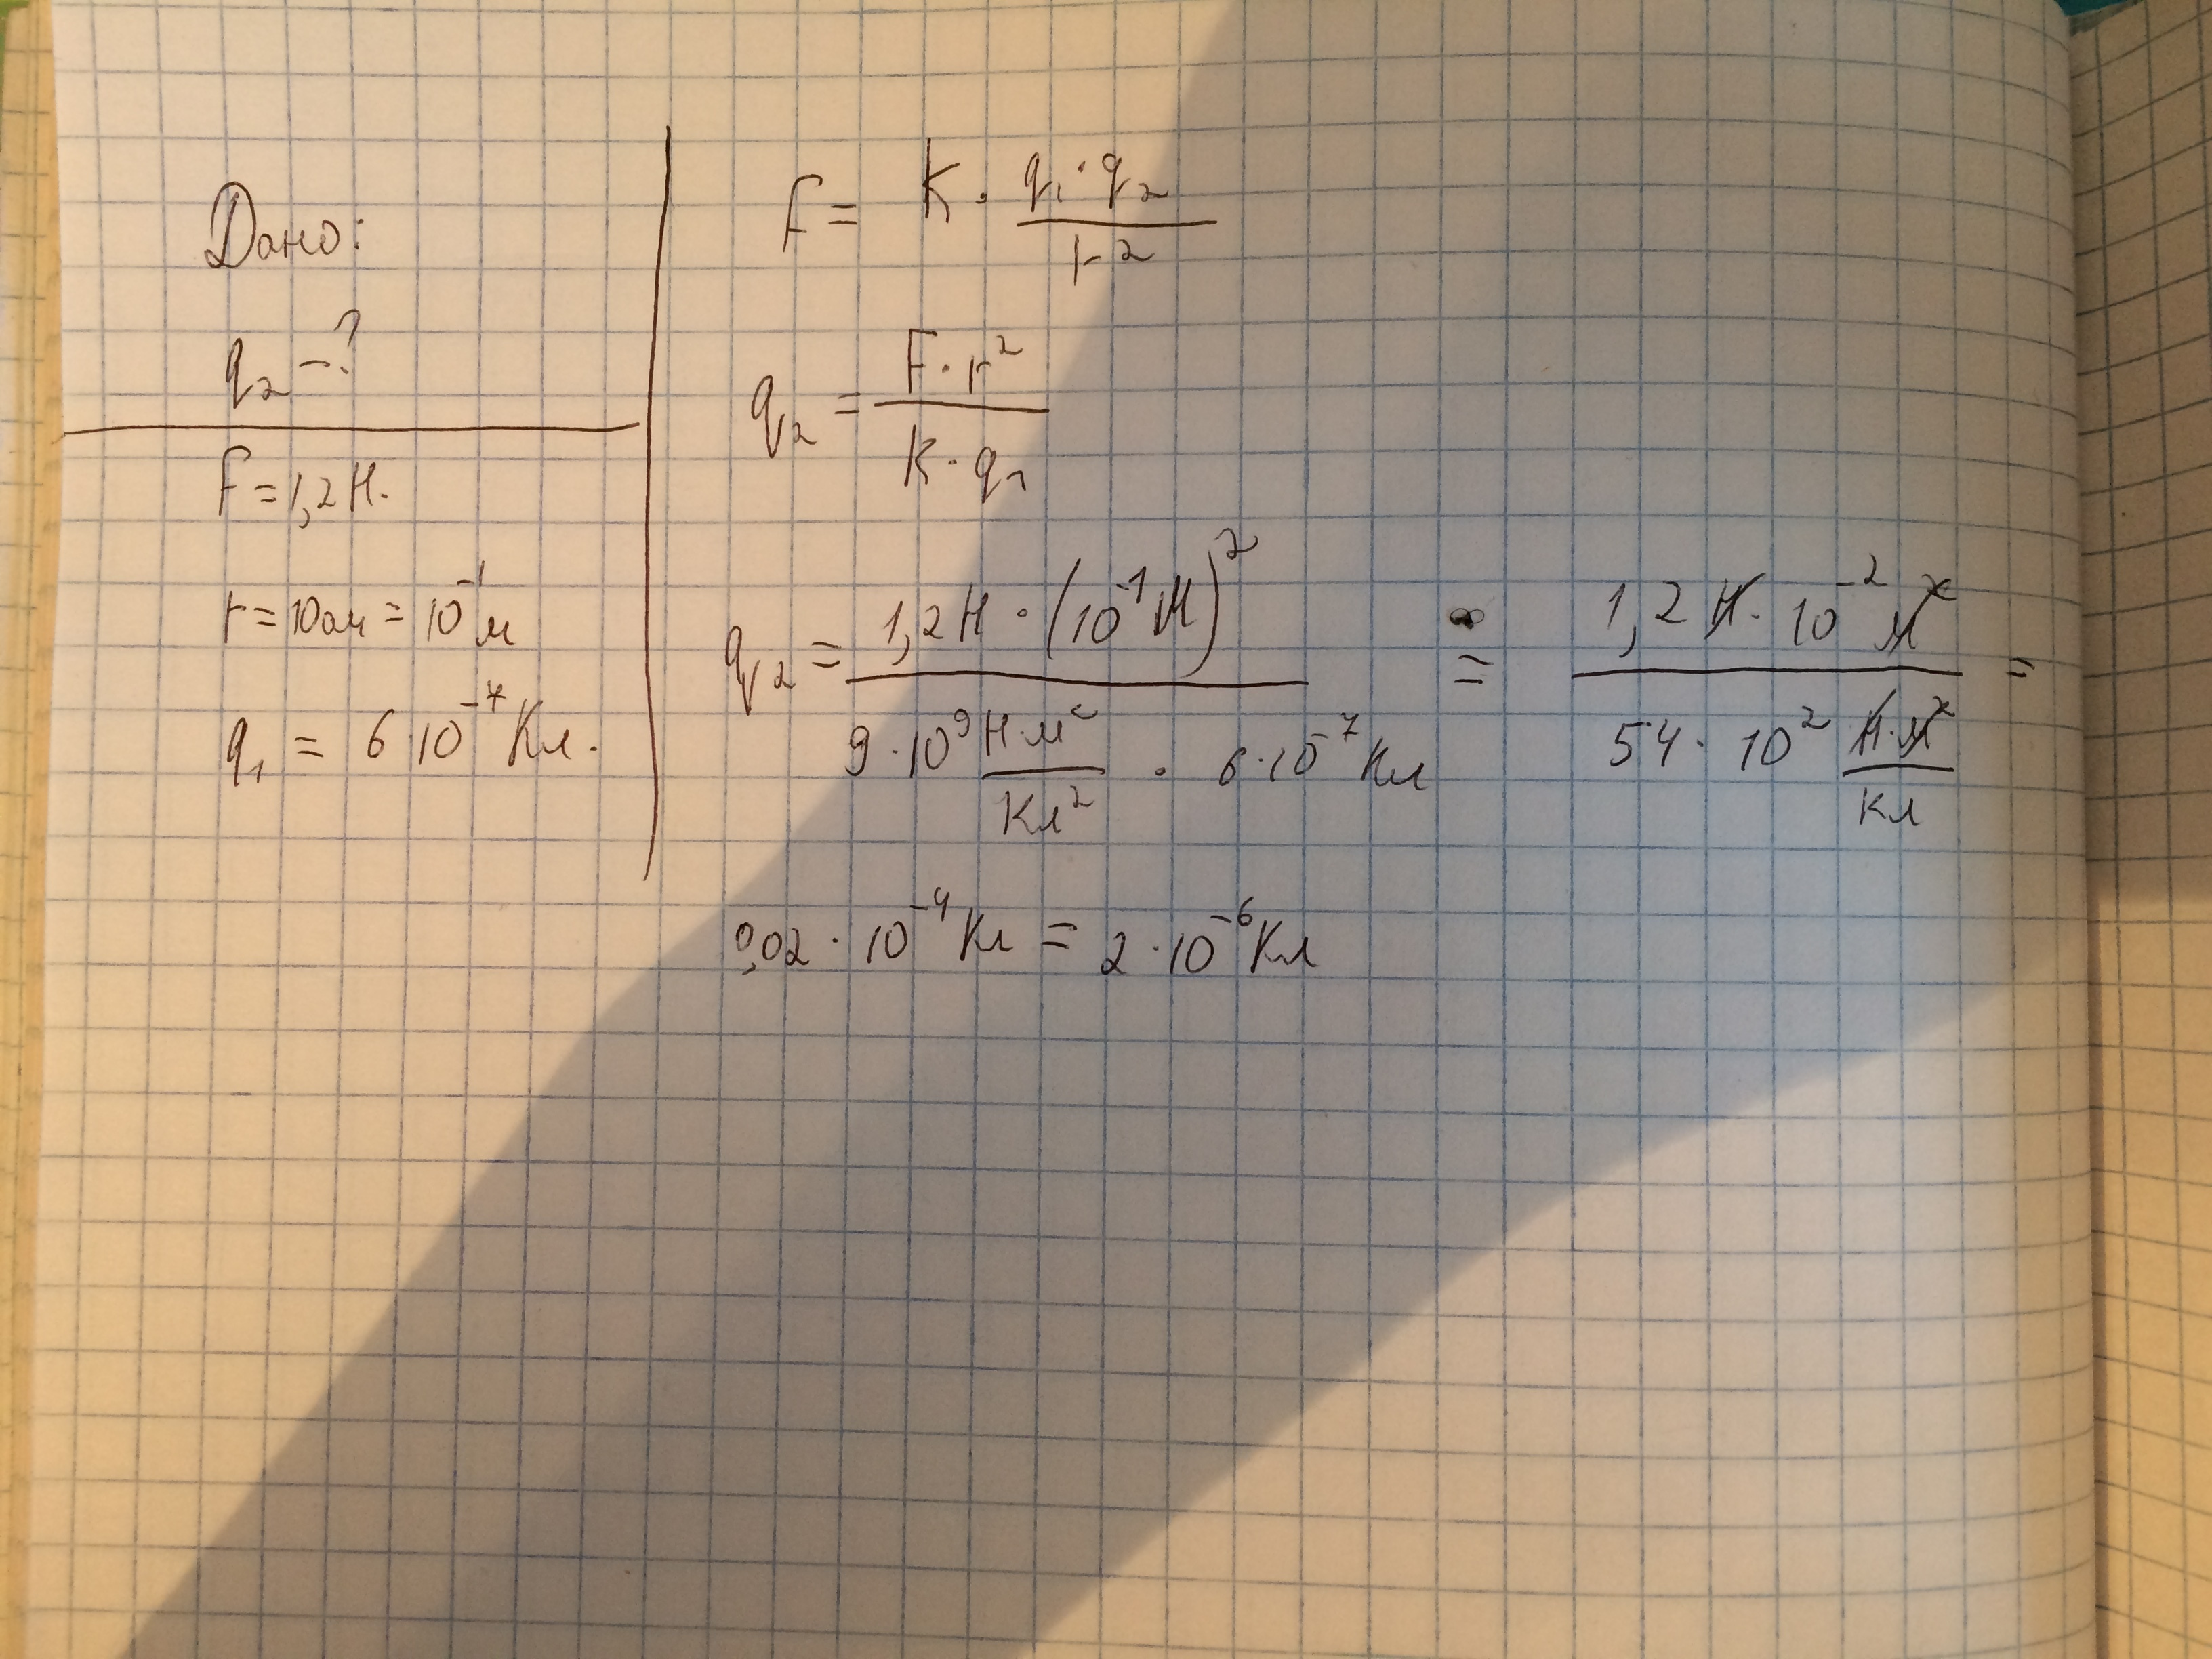 Дано:
q₂ – ?
F = 1,2 Н.
r = 10 см = 10⁻¹ м
q₁ = 6·10⁻⁷ Кл.
F = K · (q₁ · q₂) / r²
q₂ = (F · r²) / (K · q₁)
q₂ = (1,2 Н · (10⁻¹ М)²) / (9 · 10⁹ (Н·м²)/Кл² · 6·10⁻⁷ Кл) = (1,2 Н · 10⁻² м²) / (54 · 10² (Н·м²)/Кл) =
0,02 · 10⁻⁴ Кл = 2 · 10⁻⁶ Кл